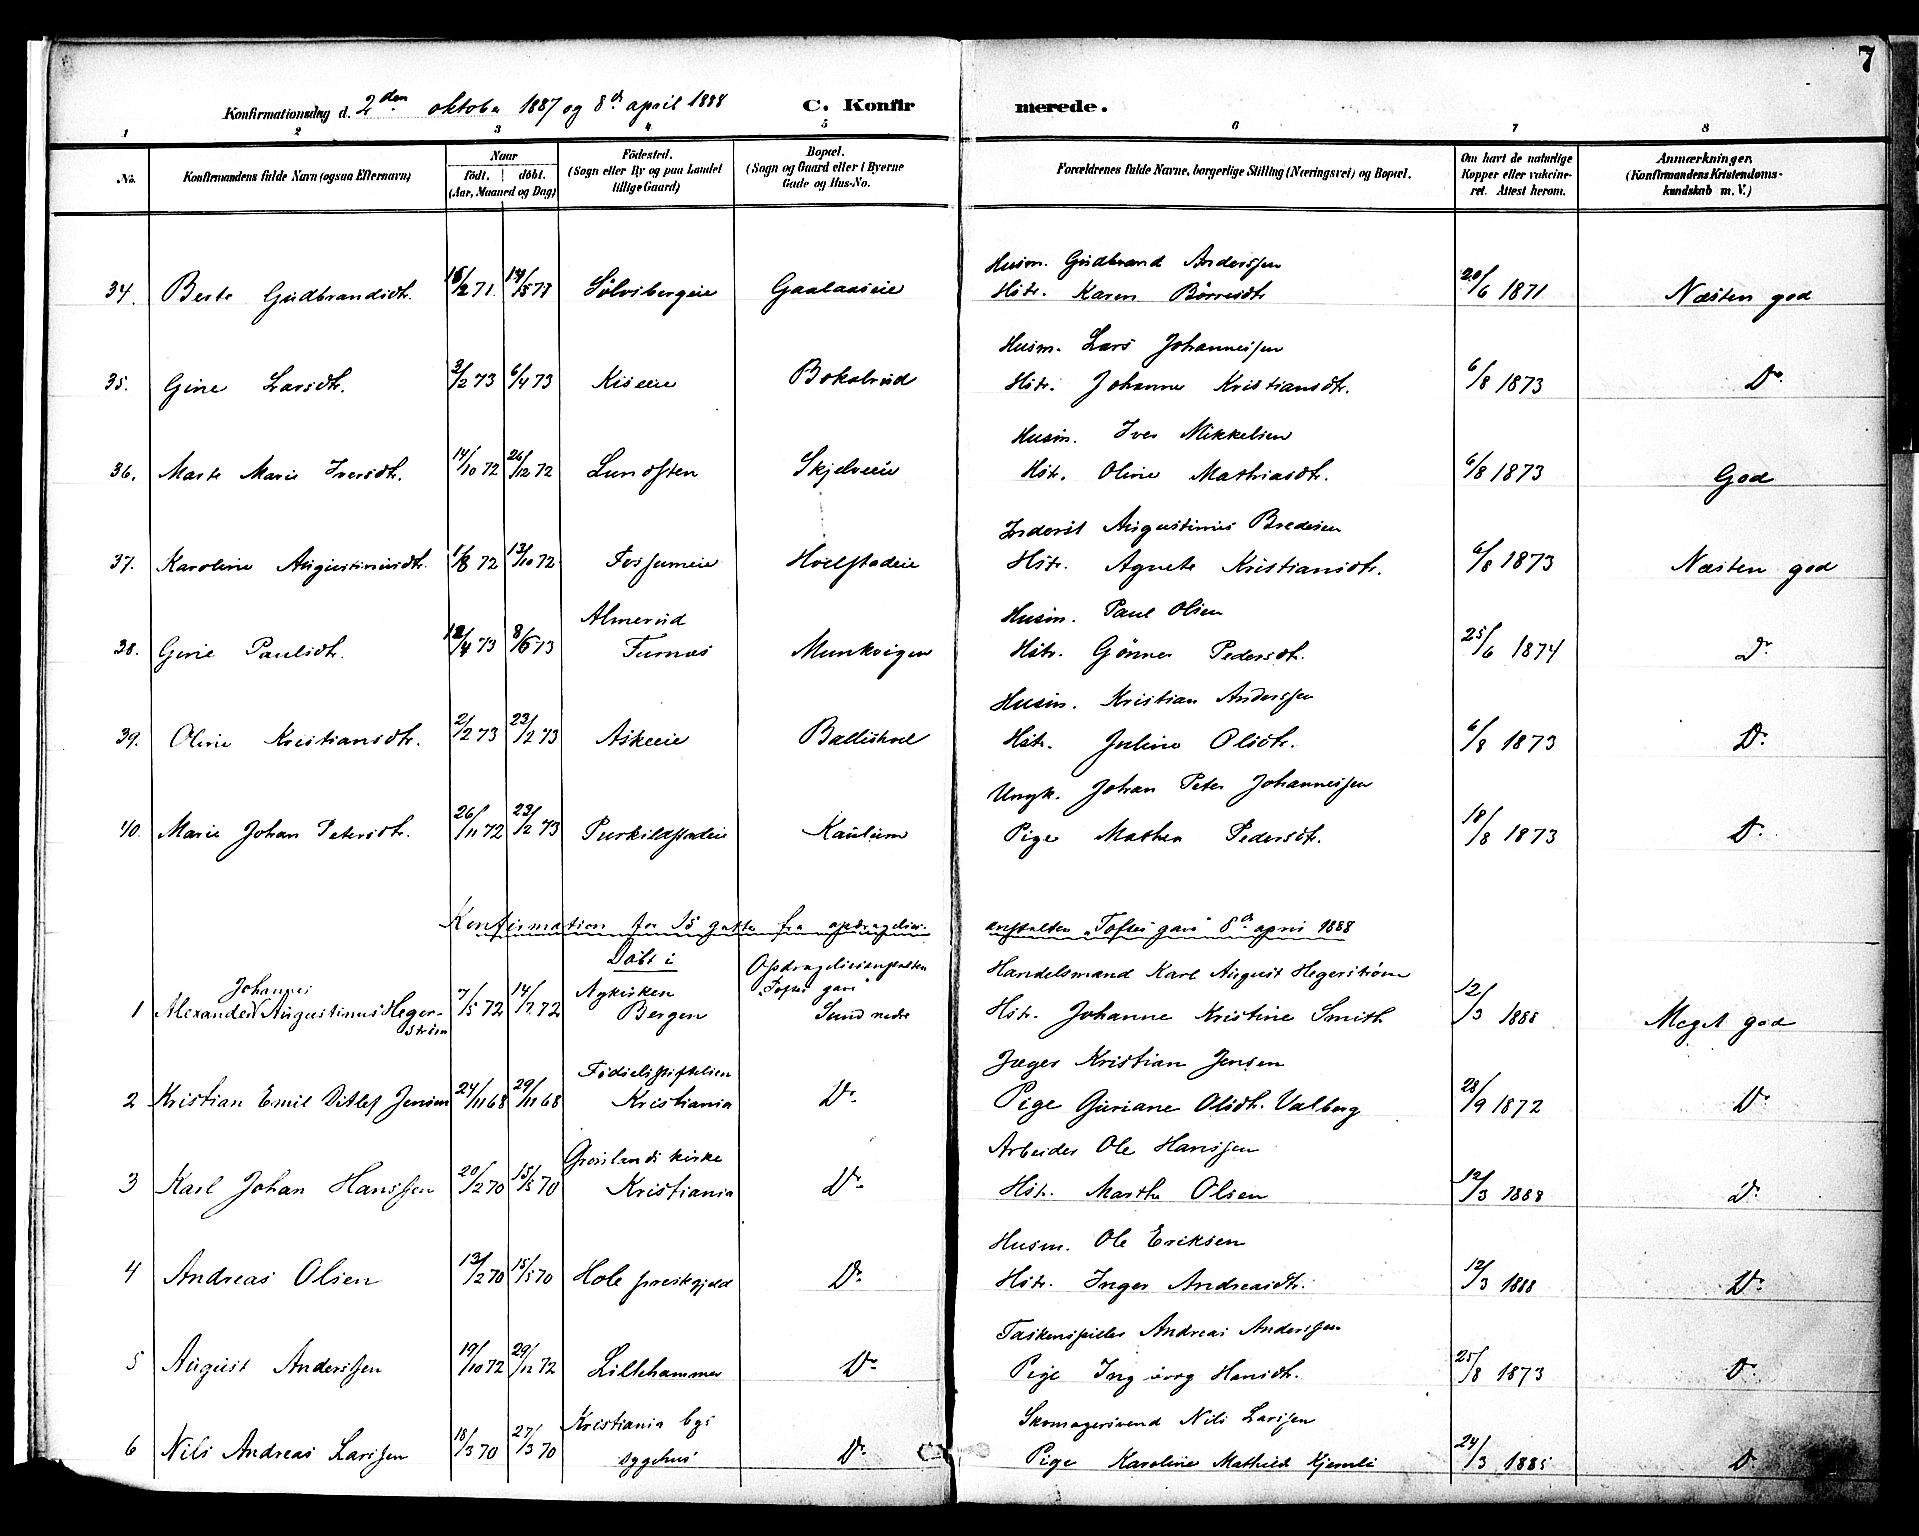 7
Konfirmationsdag d. 2den oktober 1887 og 8de april 1888 C. Konfirmerede.
1 2 3 4 5 6 7 8
No. Konfirmandens fulde Navn (ogsaa Efternavn) Naar født. døbt. (Aar, Maaned og Dag) Fødested. (Sogn eller By og paa Landet tillige Gaard) Bopæl. (Sogn og Gaard eller i Byerne Gade og Hus-No. Forældrenes fulde Navne, borgerlige Stilling (Næringsvei) og Bopæl. Om havt de naturlige Kopper eller vakcineret. Attest herom. Anmærkninger. (Konfirmandens Kristendomskundskab m. V.)
Husm. Gudbrand Anderssen
34. Berte Gudbrandsdtr. 15/2 71. 14/5 71 Sølvsbergeie Gaalaaseie Hstr. Karen Børresdtr 20/6 1871 Næsten god
Husm. Lars Johannessen
35. Gine Larsdtr. 2/2 73 6/4 73 Kiseeie Bokalrud Hstr. Johanne Kristiansdtr. 6/8 1873 Do.
Husm. Iver Mikkelsen
36. Marte Marie Iversdtr. 14/10 72 26/12 72 Lundsten Skjelveeie Hstr. Oline Mathiasdtr. 6/8 1873 God
Inderst Augustinus Bredesen
37. Karoline Augustinusdtr. 1/8 72 13/10 72 Fossumeie Hoelstadeie Hstr. Agnete Kristiansdtr. 6/8 1873 Næsten god
Almerud Husm. Paul Olsen
38. Gine Paulsdtr. 12/4 73 8/6 73 Furnes Munkvigen Hstr. Gønner Pedersdtr. 25/6 1874 Do.
Husm. Kristian Anderssen
39. Oline Kristiansdtr. 2/2 73 23/2 73 Askeeie Ballishoel Hstr. Juline Olsdtr. 6/8 1873 Do.
Ungk. Johan Peter Johannessen
40. Marie Johan Petersdtr. 26/11 72 23/2 73 Purkildstadeie Kaulum Pige Mathea Pedersdtr. 18/8 1873 Do.
Konfirmation for 15 gutter fra opdragelses- anstalten "Toftes gave" 8de april 1888
Døbt i Opdragelsesanstalten Handelsmand Karl August Hegerstrøm
Johannes Nykirken "Toftes gave"
1 Alexander Augustinus Hegerstrøm 7/5 72 14/7 72 Bergen Sund nedre Hstr. Johanne Kristine Smith 12/3 1888 Meget god
Fødselsstiftelsen Jæger Kristian Jensen
2 Kristian Emil Ditlef Jensen 24/11 68 29/11 68 Kristiania Do. Pige Guriane Olsdtr. Valberg 28/9 1872 Do.
Grønlands kirke Arbeider Ole Hanssen
3 Karl Johan Hanssen 20/2 70 15/5 70 Kristiania Do. Hstr. Marthe Olsen 12/3 1888 Do.
Husm. Ole Eriksen
4 Andreas Olsen 13/2 70 15/5 70 Hole prestegjeld Do. Hstr. Inger Andreasdtr. 12/3 1888 Do.
Taskenspiller Andreas Anderssen
5 August Anderssen 19/10 72 29/12 72 Lillehammer Do. Pige Ingeborg Hansdtr. 25/8 1873 Do.
Kristiania bys Skomagersvend Nils Larssen
6 Nils Andreas Larssen 18/3 70 27/3 70 sygehus Do. Pige Karoline Mathilde 24/3 1885 Do.